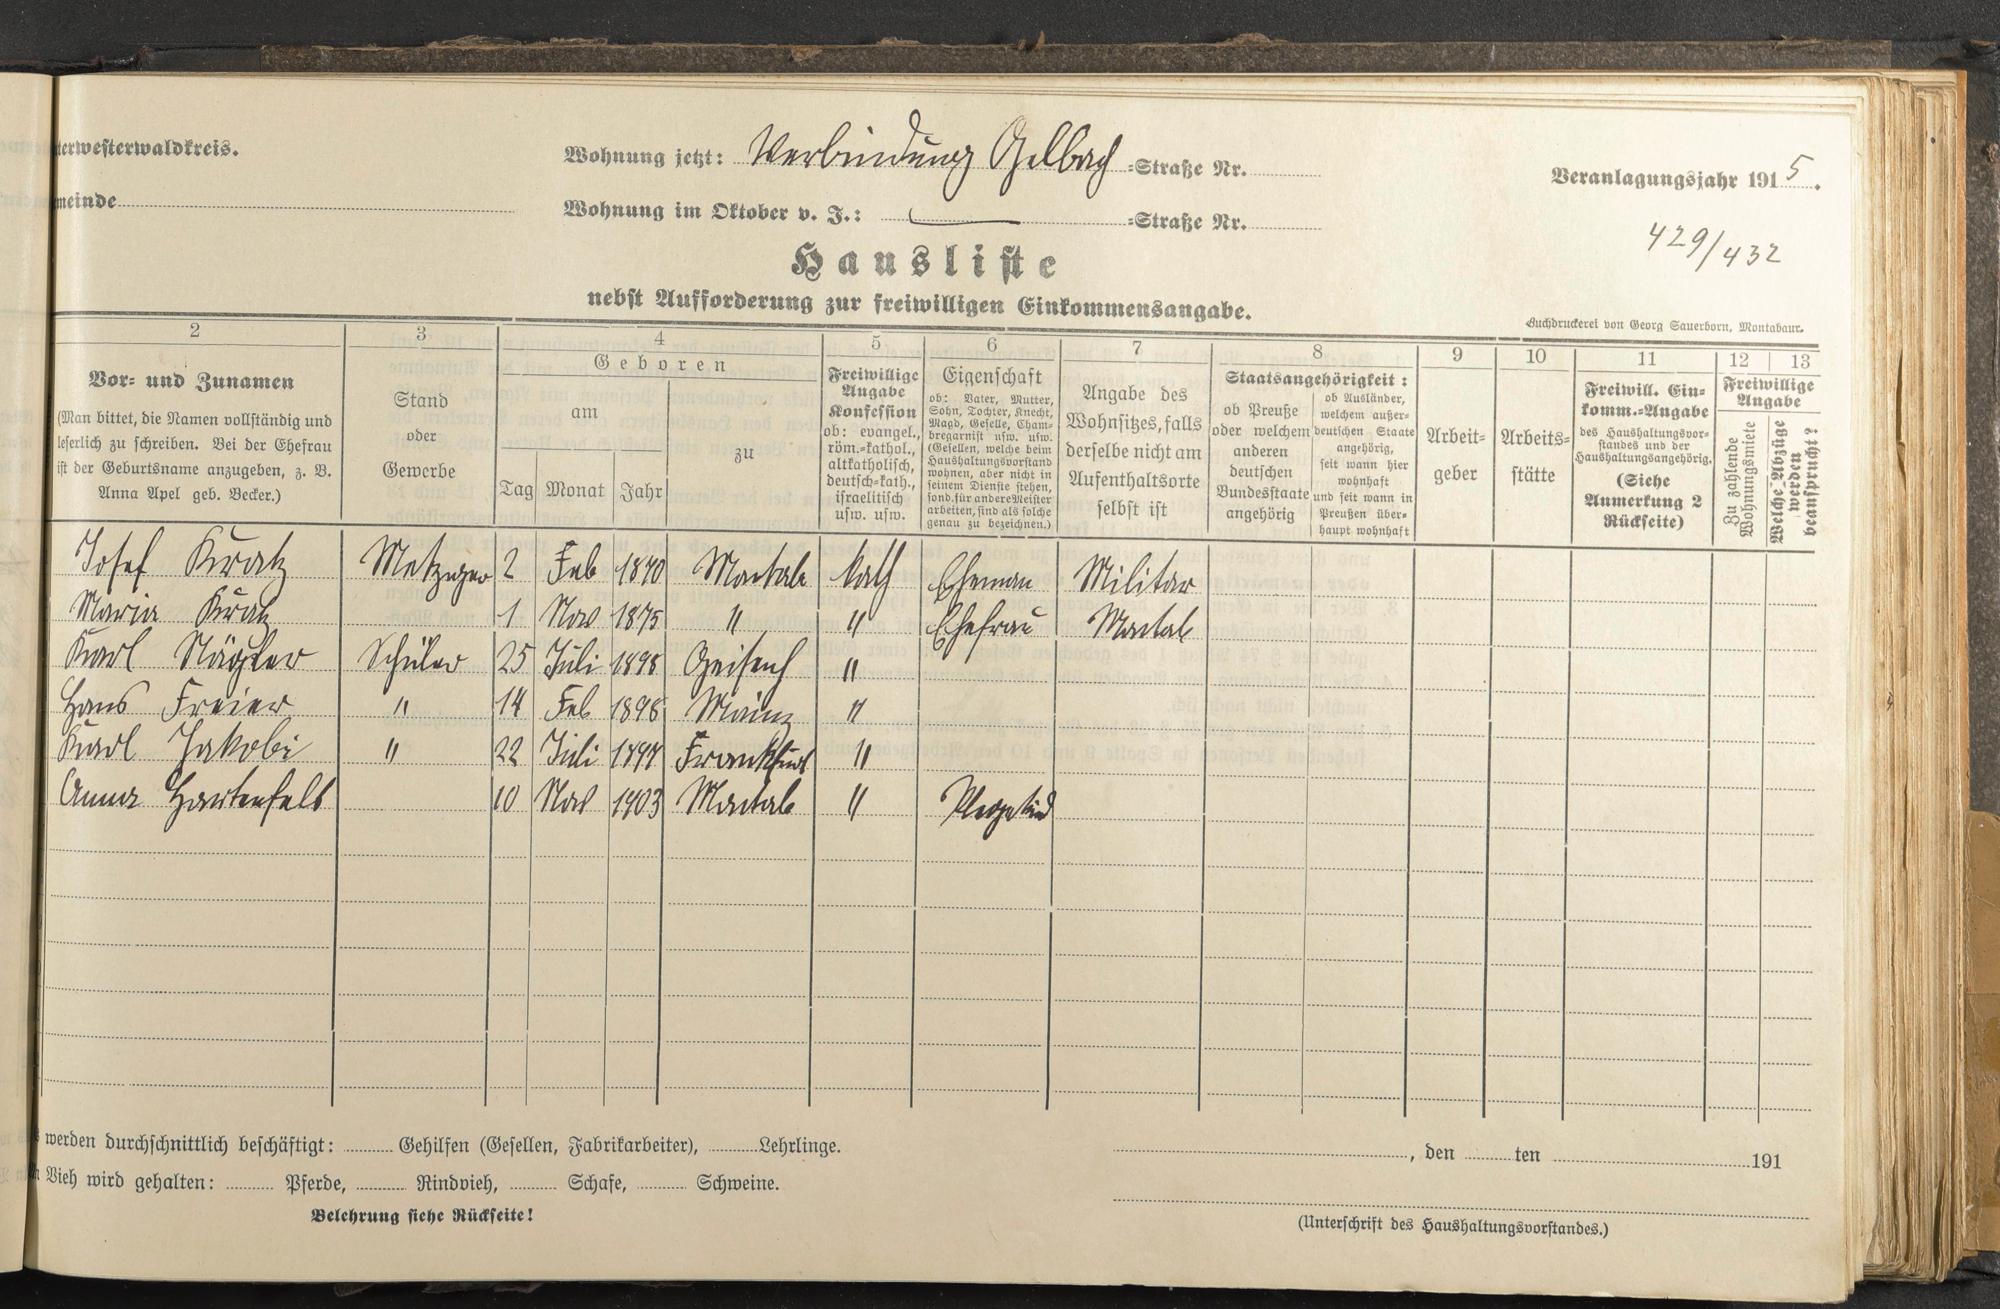 terwesterwaldkreis.
Wohnung jetzt: Verbindung Gelbach =Straße Nr.
Veranlagungsjahr 1915.
meinde
Wohnung im Oktober v. J.: =Straße Nr.
429/432
Hausliste
nebst Aufforderung zur freiwilligen Einkommensangabe.
Buchdruckerei von Georg Sauerborn, Montabaur.
2 3 4 5 6 7 8 9 10 11 12 13
Vor- und Zunamen
(Man bittet, die Namen vollständig und
leserlich zu schreiben. Bei der Ehefrau
ist der Geburtsname anzugeben, z. B.
Anna Apel geb. Becker.)
Stand
oder
Gewerbe
Geboren
am
Tag Monat Jahr
zu
Freiwillige
Angabe
Konfession
ob: evangel.,
röm.-kathol.,
altkatholisch,
deutsch-kath.,
israelitisch
usw. usw.
Eigenschaft
ob: Vater, Mutter,
Sohn, Tochter, Knecht,
Magd, Geselle, Cham-
bregarnist usw. usw.
(Gesellen, welche beim
Haushaltungsvorstand
wohnen, aber nicht in
seinem Dienste stehen,
sond. für andere Meister
arbeiten, sind als solche
genau zu bezeichnen.)
Angabe des
Wohnsitzes, falls
derselbe nicht am
Aufenthaltsorte
selbst ist
Staatsangehörigkeit:
ob Preuße
oder welchem
anderen
deutschen
Bundesstaate
angehörig
ob Ausländer,
welchem außer-
deutschen Staate
angehörig,
seit wann hier
wohnhaft
und seit wann in
Preußen über-
haupt wohnhaft
Arbeit-
geber
Arbeits-
stätte
Freiwill. Ein-
komm.-Angabe
des Haushaltungsvor-
standes und der
Haushaltungsangehörig.
(Siehe
Anmerkung 2
Rückseite)
Freiwillige
Angabe
Zu zahlende
Wohnungsmiete
Welche Abzüge
werden
beansprucht?
Josef Kratz Metzger 2 Feb 1870 Montab kath Eheman Militär
Maria Kratz 1 Nov 1875 " " Ehefrau Montab
Karl Nägler Schüler 25 Juli 1898 "
Hans Freier " 14 Feb 1898 Mainz "
Karl Jakobi " 22 Juli 1897 Frankfurt "
Anna Hartenfels 10 Nov 1903 Montab "
werden durchschnittlich beschäftigt: Gehilfen (Gesellen, Fabrikarbeiter), Lehrlinge.
, den ten 191
Vieh wird gehalten: Pferde, Rindvieh, Schafe, Schweine.
Belehrung siehe Rückseite!
(Unterschrift des Haushaltungsvorstandes.)